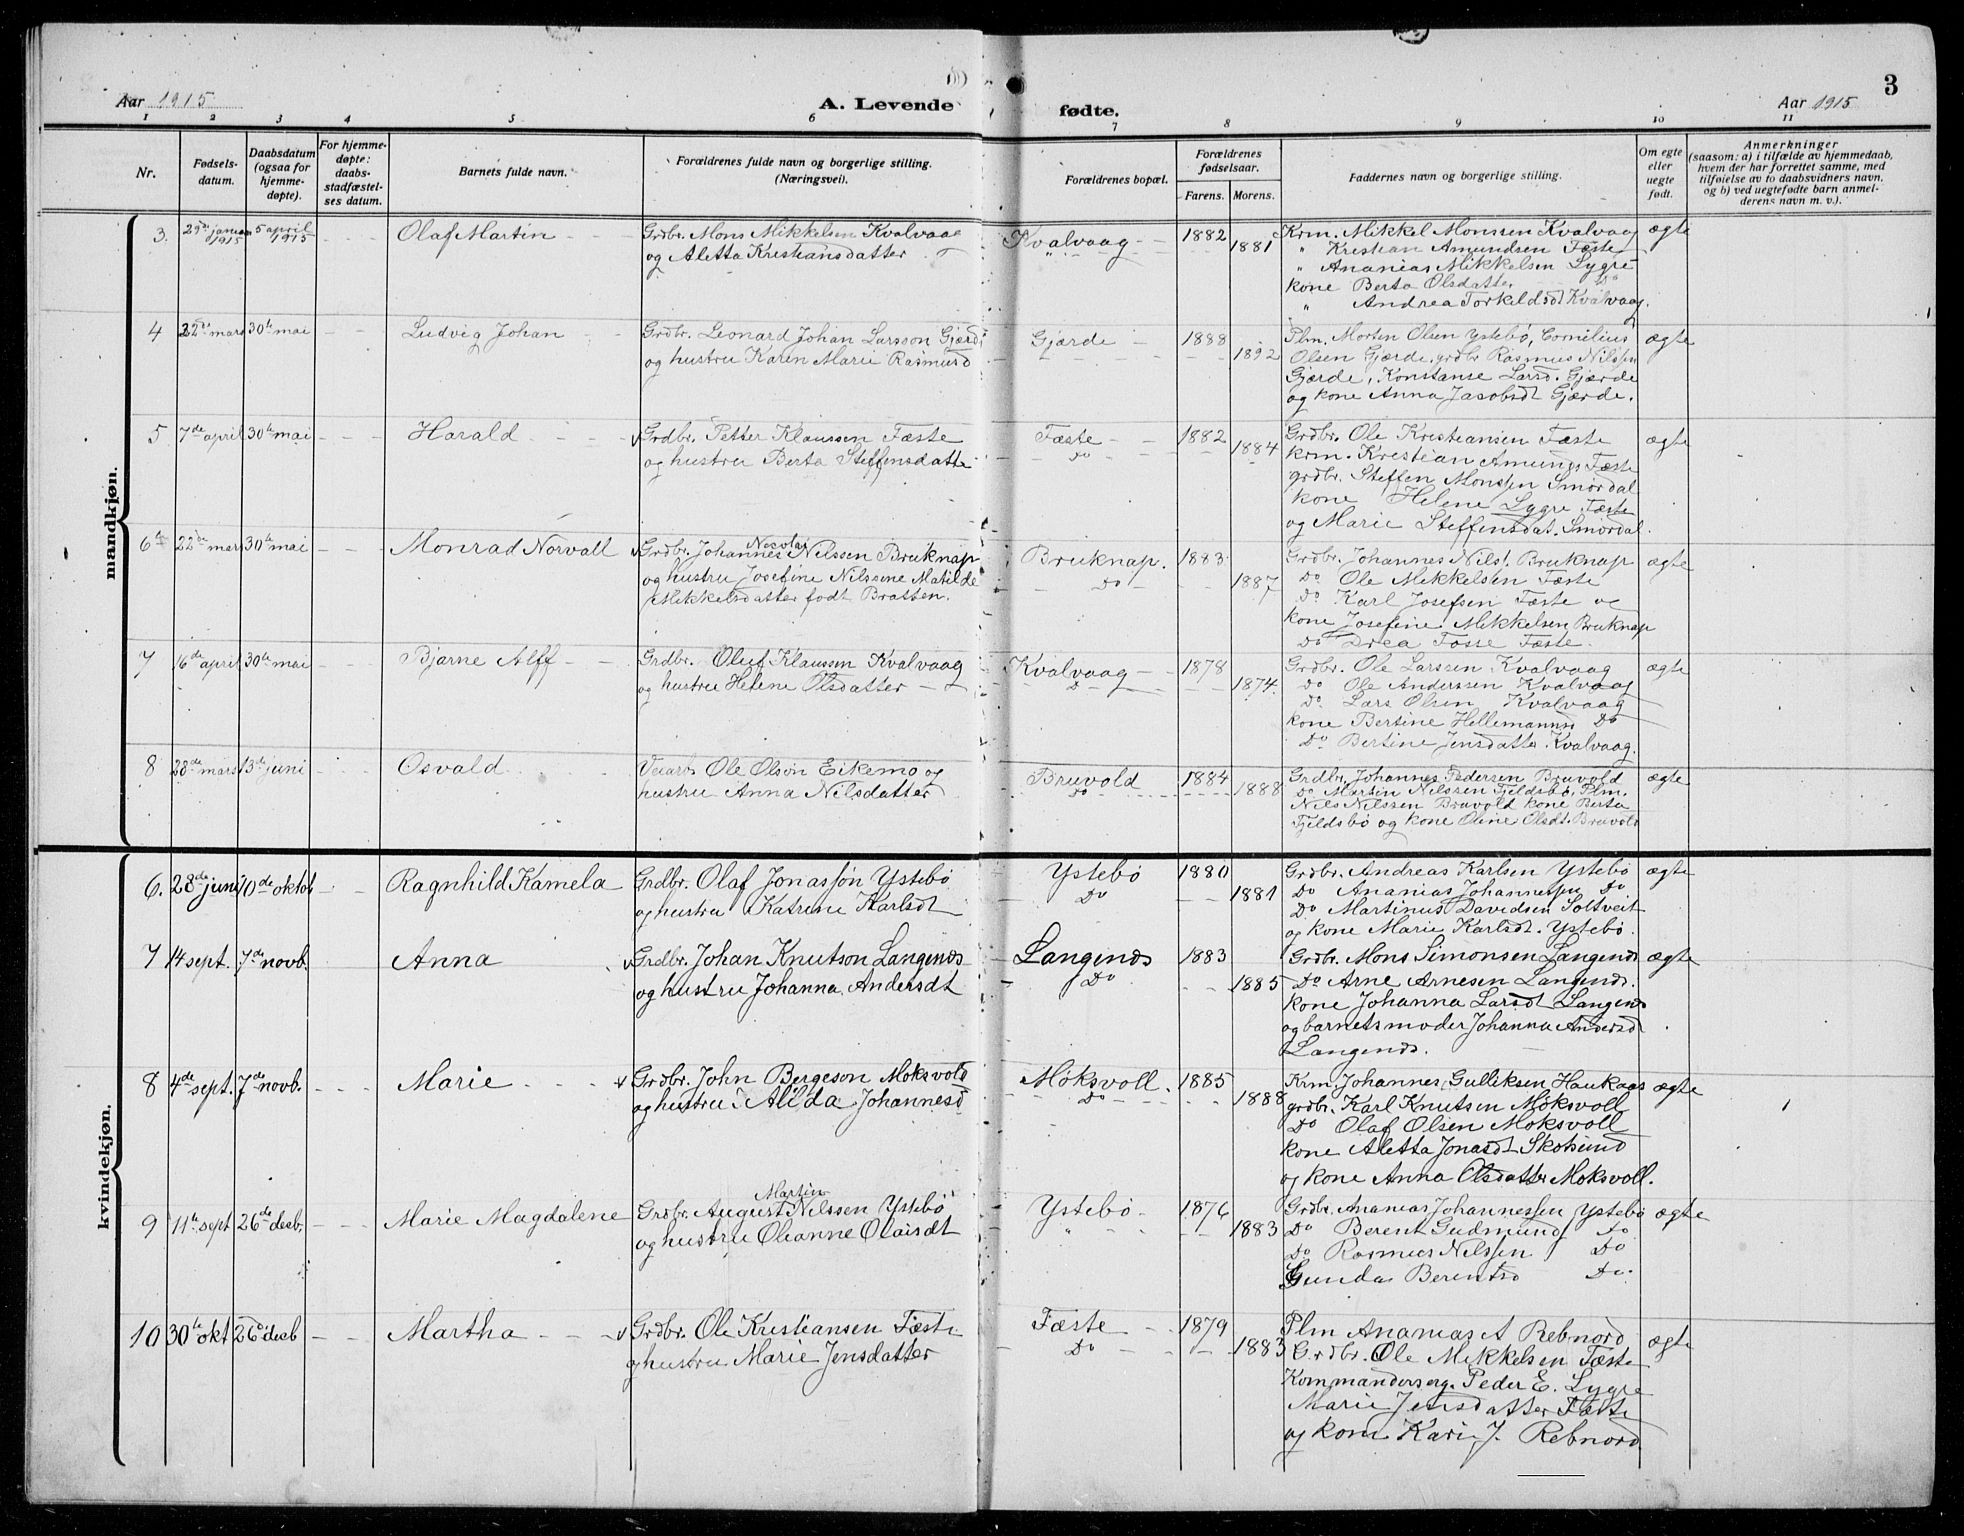 Aar 1915
A. Levende
fødte.
Aar 1915
3
1 2 3 4 5 6 7 8 9 10 11
Nr.
Fødsels-
datum.
Daabsdatum
(ogsaa for
hjemme-
døpte).
For hjemme-
døpte:
daabs-
stadfæstel-
ses datum.
Barnets fulde navn.
Forældrenes fulde navn og borgerlige stilling.
(Næringsvei).
Forældrenes bopæl.
Forældrenes
fødselsaar.
Farens. Morens.
Faddernes navn og borgerlige stilling.
Om egte
eller
uegte
født.
Anmerkninger
(saasom: a) i tilfælde av hjemmedaab,
hvem der har forrettet samme, med
tilføielse av to daabsvidners navn,
og b) ved uegtefødte barn anmel-
derens navn m. v.).
mandkjøn.
3. 29de januar 1915 5 april 1915 Olaf Martin Grdbr. Mons Mikkelsen Kvalvaag
og Aletta Kristiansdatter
Kvalvaag 1882 1881
Krm. Mikkel Monssen Kvalvaag ægte
" Kristian Amundsen Fæste
" Ananias Mikkelsen Lygre
kone Berta Olsdatter Do
" Andrea Torkildsdt Kvalvaag.
4 22de mars 30te mai Ludvig Johan Grdbr. Leonard Johan Larsson Gjærde
og hustru Karen Marie Rasmusd
Gjærde 1888 1892
Plm. Morten Olsen Ystebö, Cornelius ægte
Olsen Gjærde, grdbr Rasmus Nilssen
Gjærde, Konstanse Larsd. Gjærde
og kone Anna Jacobsdt Gjærde.
5 7de april 30te mai Harald Grdbr. Petter Klaussen Fæste
og hustru Berta Steffensdatter
Fæste Do 1882 1884
Grdbr. Ole Kristiansen Fæste ægte
krm. Kristian Amunds Fæste
grdbr. Steffen Monssen Smördal
kone Helene Lygre Fæste
og Marie Steffensdat. Smördal.
6 22de mars 30te mai Monrad Norvall Grdbr. Johannes Nicolai Nilssen Bruknap
og hustru Josefine Nilssine Matilde
Mikkelsdatter født Bratten.
Bruknap. Do 1883 1887
Grdbr. Johannes Nils. Bruknap ægte
Do Ole Mikkelsen Fæste
Do Karl Josefsen Fæste og
kone Josefine Mikkelsen Bruknap
Do Drea Fosse Fæste.
7 16de april 30te mai Bjarne Alff Grdbr. Oluf Klaussen Kvalvaag
og hustru Helene Olsdatter
Kvalvaag Do 1878 1874.
Grdbr. Ole Larssen Kvalvaag ægte
Do Ole Anderssen Kvalvaag
Do Lars Olsen Kvalvaag
kone Bertine Hellemannsd Do
Do Bertine Jensdatter Kvalvaag.
8 28de mars 13de juni Osvald Veiarb. Ole Olson Eikemo og
hustru Anna Nilsdatter
Bruvold Do 1884 1888
Grdbr. Johannes Pedersen Bruvold ægte
Do Martin Nilssen Fjeldsbö, Plm.
Nils Nilssen Bruvold kone Berta
Fjeldsbö og kone Oline Olsdt. Bruvold
kvindekjøn.
6. 28de juni 10de oktob Ragnhild Kamela Grdbr. Olaf Jonassön Ystebö
og hustru Katrine Karlsdt
Ystebö Do 1880 1881
Grdbr. Andreas Karlsen Ystebö ægte
Do Ananias Johannessen Do
Do Martinus Davidsen Soltveit
og kone Marie Karlsdt. Ystebö.
7 14 sept. 7de novb. Anna Grdbr. Johan Knutson Langenes
og hustru Johanna Andersdt
Langenes Do 1883 1885
Grdbr. Mons Simonsen Langenes ægte
Do Arne Arnesen Langenes.
kone Johanna Larsdt Langenes
og barnets moder Johanna Andersd
Langenes.
8 4de sept. 7de novb. Marie Grdbr. John Bergeson Moksvold
og hustru Alida Johannesd
Möksvoll. Do 1885 1888
Krm Johannes Gulliksen Haukaas ægte
grdbr. Karl Knutsen Möksvoll
Do Olaf Olsen Moksvoll
kone Aletta Jonasdt Skotsund
og kone Anna Olsdatter Moksvoll.
9 11te sept 26de desb. Marie Magdalene Grdbr. August Martin Nilssen Ystebö
og hustru Olianne Olaisdt
Ystebö " 1876 1883
Grdbr. Ananias Johannessen Ystebö ægte
Do Berent Gudmunds Do
Do Rasmus Nilssen Do
Gunda Berentsd Do.
10 30te okt 26 desb Martha Grdbr. Ole Kristiansen Fæste
og hustru Marie Jensdatter
Fæste Do 1879 1883
Plm Ananias A Rebnord ægte
Grdbr. Ole Mikkelsen Fæste
Kommanderserg. Peder E. Lygre
Marie Jensdatter Fæste
og kone Kari J. Rebnord